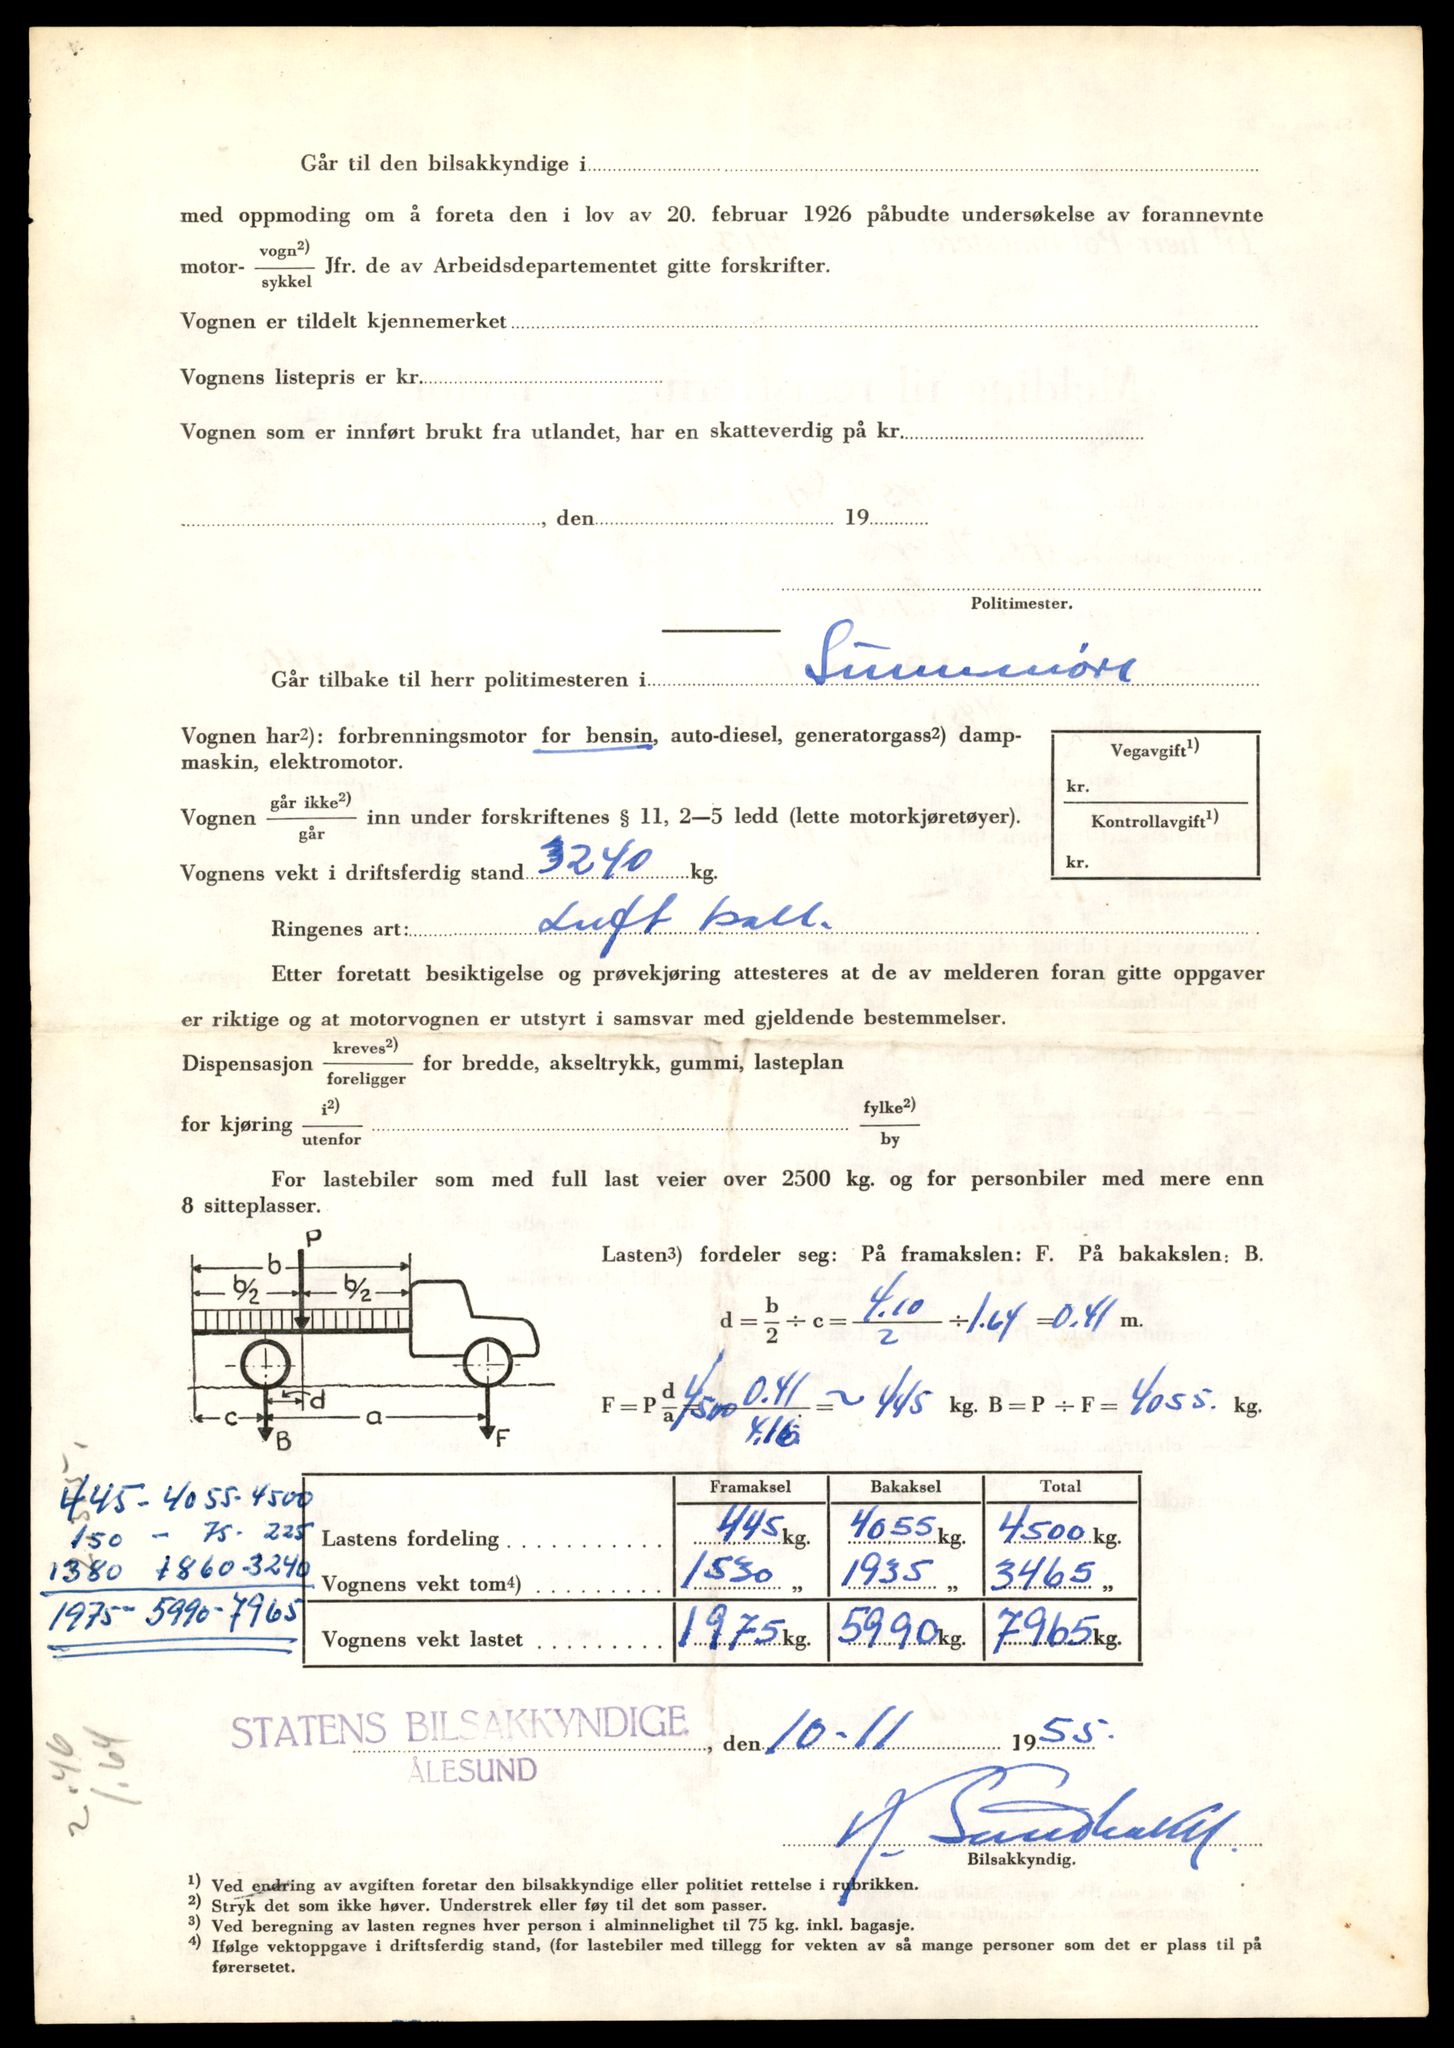 Går til den bilsakkyndige i
med oppmoding om å foreta den i lov av 20. februar 1926 påbudte undersøkelse av forannevnte
motor- vogn2) / sykkel Jfr. de av Arbeidsdepartementet gitte forskrifter.
Vognen er tildelt kjennemerket
Vognens listepris er kr.
Vognen som er innført brukt fra utlandet, har en skatteverdig på kr.
, den 19
Politimester.
Går tilbake til herr politimesteren i Sunnmøre
Vognen har2): forbrenningsmotor for bensin, auto-diesel, generatorgass2) damp-
maskin, elektromotor.
Vegavgift1)
kr.
Kontrollavgift1)
kr.
Vognen går ikke2) / går inn under forskriftenes § 11, 2—5 ledd (lette motorkjøretøyer).
Vognens vekt i driftsferdig stand 3240 kg.
Ringenes art: Luft ball.
Etter foretatt besiktigelse og prøvekjøring attesteres at de av melderen foran gitte oppgaver
er riktige og at motorvognen er utstyrt i samsvar med gjeldende bestemmelser.
Dispensasjon kreves2) / foreligger for bredde, akseltrykk, gummi, lasteplan
for kjøring i2) / utenfor fylke2) / by
For lastebiler som med full last veier over 2500 kg. og for personbiler med mere enn
8 sitteplasser.
P
b
b/2 b/2
d
c a
B F
Lasten3) fordeler seg: På framakslen: F. På bakakslen: B.
d = b/2 ÷ c = 4.10/2 ÷ 1.64 = 0.41 m.
F = P d/a = 4500 0.41/4.16 = ~ 445 kg. B = P ÷ F = 4055. kg.
445 - 4055 - 4500
150 - 75 - 225
1380 1860 - 3240
1975 - 5990 - 7965
Framaksel Bakaksel Total
Lastens fordeling 445 kg. 4055 kg. 4500 kg.
Vognens vekt tom4) 1530 „ 1935 „ 3465 „
Vognens vekt lastet 1975 kg. 5990 kg. 7965 kg.
STATENS BILSAKKYNDIGE
ÅLESUND
, den 10-11 1955.
2.46
1.64
Bilsakkyndig.
1) Ved endring av avgiften foretar den bilsakkyndige eller politiet rettelse i rubrikken.
2) Stryk det som ikke høver. Understrek eller føy til det som passer.
3) Ved beregning av lasten regnes hver person i alminnelighet til 75 kg. inkl. bagasje.
4) Ifølge vektoppgave i driftsferdig stand, (for lastebiler med tillegg for vekten av så mange personer som det er plass til på
førersetet.